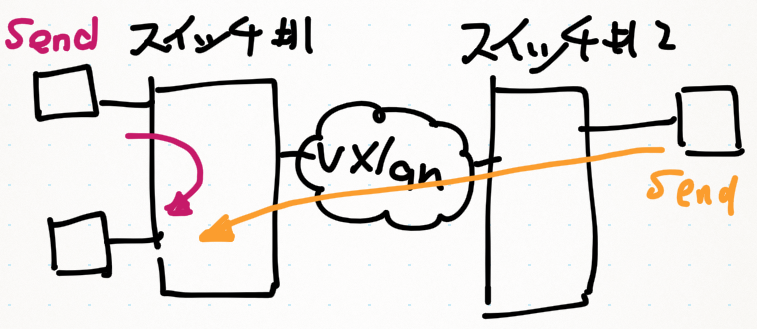 Send スイッチ#1 スイッチ#2
Vxlan
Send